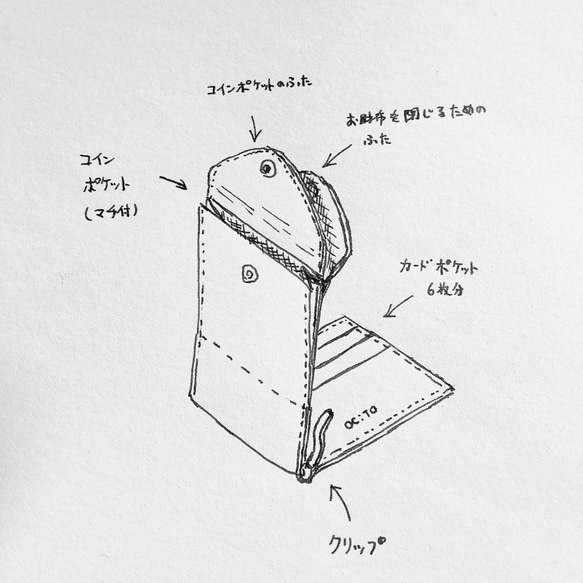 コインポケットのふた
お財布を閉じるための
ふた
コイン
ポケット
(マチ付)
カードポケット
6枚分
OCiTO
クリップ